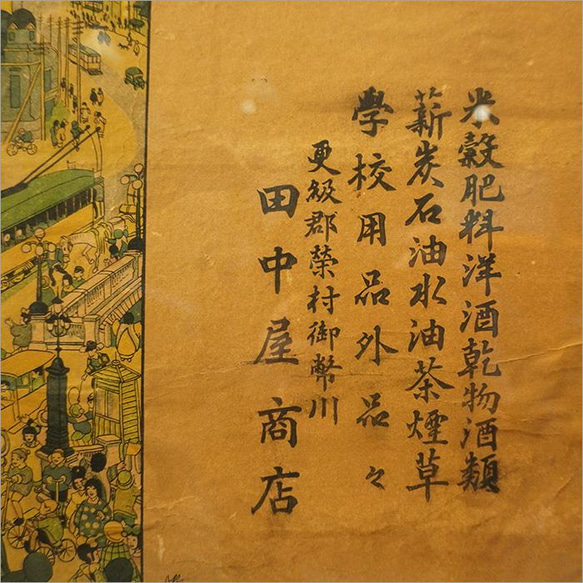 米穀肥料洋酒乾物酒類
薪炭石油水油茶煙草
學校用品外品々
更級郡榮村御幣川
田中屋商店